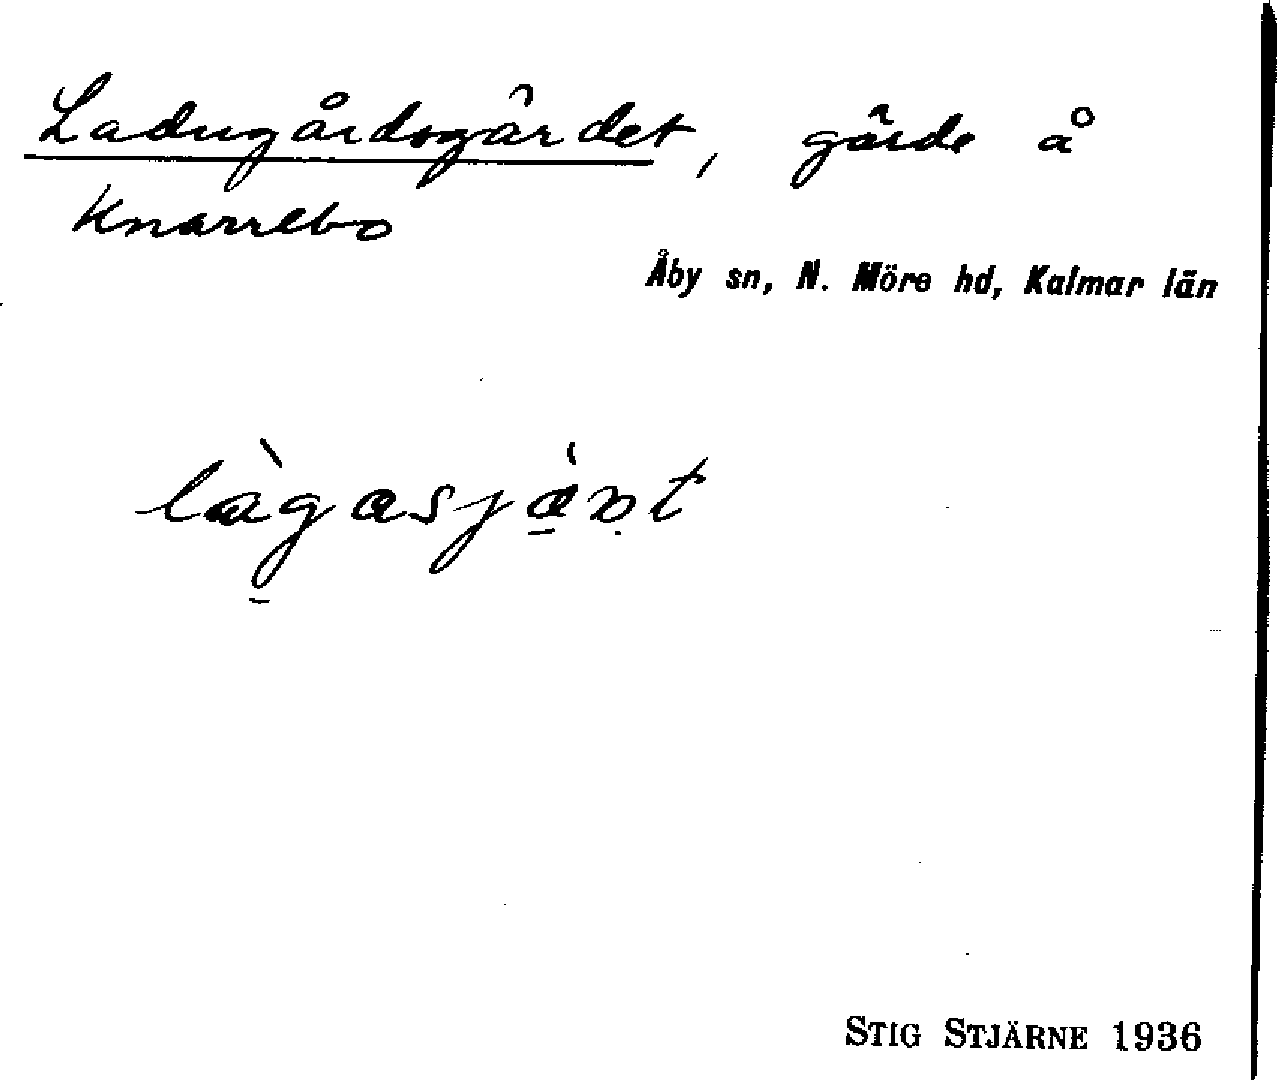 Ladugårdsgärdet, gärde å
Knarrebo
Åby sn, N. Möre hd, Kalmar län
STIG STJÄRNE 1936